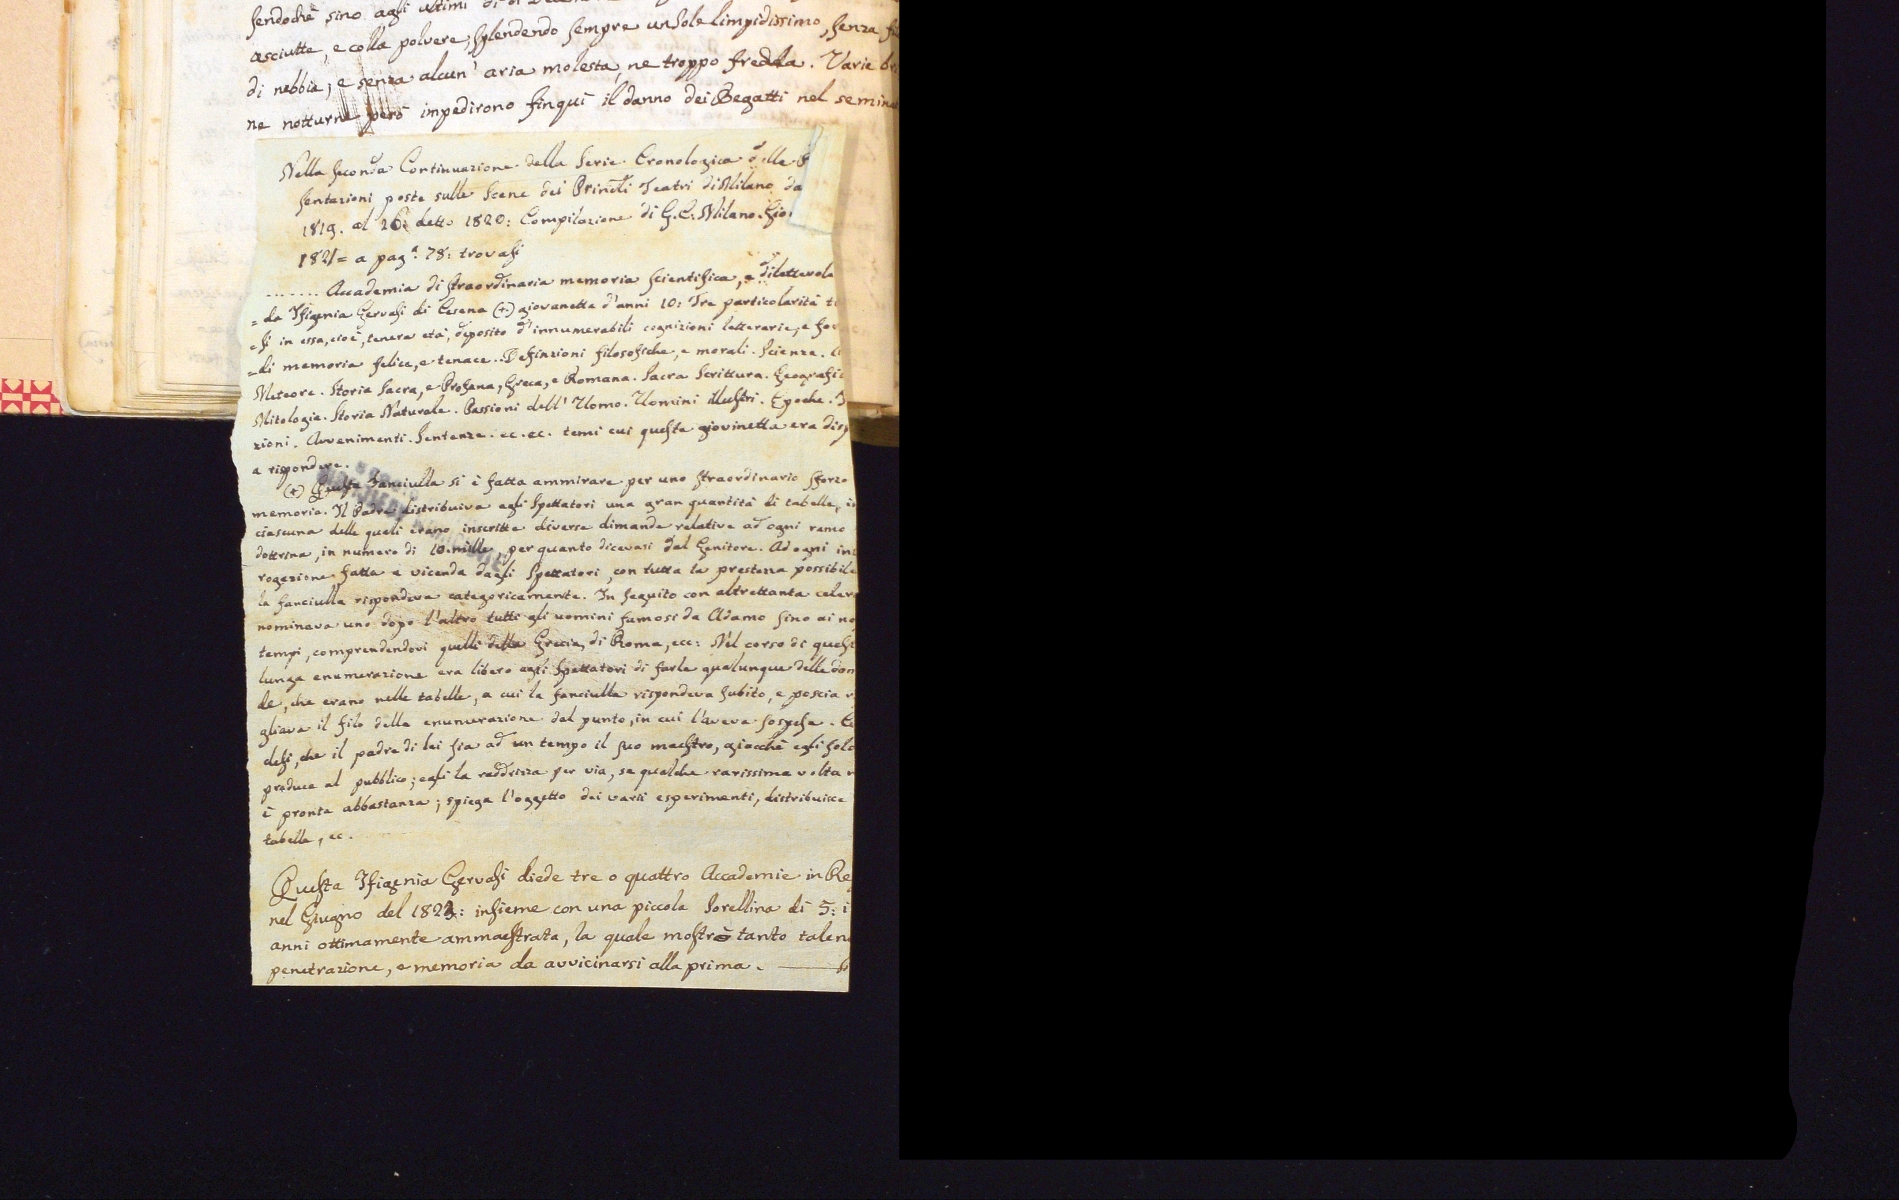 sendochè sino agli ultimi di di
asciutte, e colla polvere, splendendo sempre un Sole limpidissimo, senza
di nebbia, e senza alcun' aria molesta, ne troppo fredda. Varie
ne notturne però impedirono finqui il danno dei Begatti nel semina
Nella seconda Continuazione della Serie Cronologica delle
sentazioni poste sulle Scene dei Principli Teatri di Milano da
1819. al 26: detto 1820: Compilazione di G.C. Milano. Gio.
1821= a pag.ª 78: trovasi
....... Accademia di straordinaria memoria scientifica, e dilettevole
= da Ifigenia Gervasi di Cesena (+) giovanetta d'anni 10: Tre particolarità
= si in essa, cioè, tenera età, deposito d'innumerabili cognizioni letterarie, e
= di memoria felice, e tenace. Definizioni filosofiche, e morali. Scienze.
Meteore. Storia Sacra, e Profana, Greca, e Romana. Sacra Scrittura. Geografic
Mitologia. Storia Naturale. Passioni dell' Uomo. Uomini illustri. Epoche.
zioni. Avvenimenti. Sentenze. ec. ec. temi cui questa giovinetta era disp
a rispondere.
(+) Questa Fanciulla si è fatta ammirare per uno straordinario sforzo
memoria. Il Padre distribuiva agli Spettatori una gran quantità di tabelle, in
ciascuna delle quali erano inscritte diverse dimande relative ad ogni ramo
dottrina, in numero di 10. mille, per quanto dicevasi dal Genitore. Ad ogni int
rogazione fatta a vicenda dagli Spettatori, con tutta la prestezza possibile
la fanciulla rispondeva categoricamente. In seguito con altrettanta celer
nominava uno dopo l'altro tutti gli uomini famosi da Adamo sino ai no
tempi, comprendendovi quelli della Grecia, di Roma, ecc: Nel corso di quest
lunga enumerazione era libero agli Spettatori di farle qualunque delle dom
de, che erano nelle tabelle, a cui la fanciulla rispondeva subito, e poscia r
gliava il filo della enumerazione dal punto, in cui l'aveva sospesa. Cr
desi, che il padre di lei sia ad un tempo il suo maestro, giacchè egli solo
produce al pubblico; egli la raddrizza per via, se qualche rarissima volta n
è pronta abbastanza; spiega l'oggetto dei varii esperimenti, distribuisce
tabelle, ec.
Questa Ifigenia Gervasi diede tre o quattro Accademie in Re
nel Giugno del 1823: insieme con una piccola Sorellina di 5: i
anni ottimamente ammaestrata, la quale mostrò tanto talen
penetrazione, e memoria da avvicinarsi alla prima.